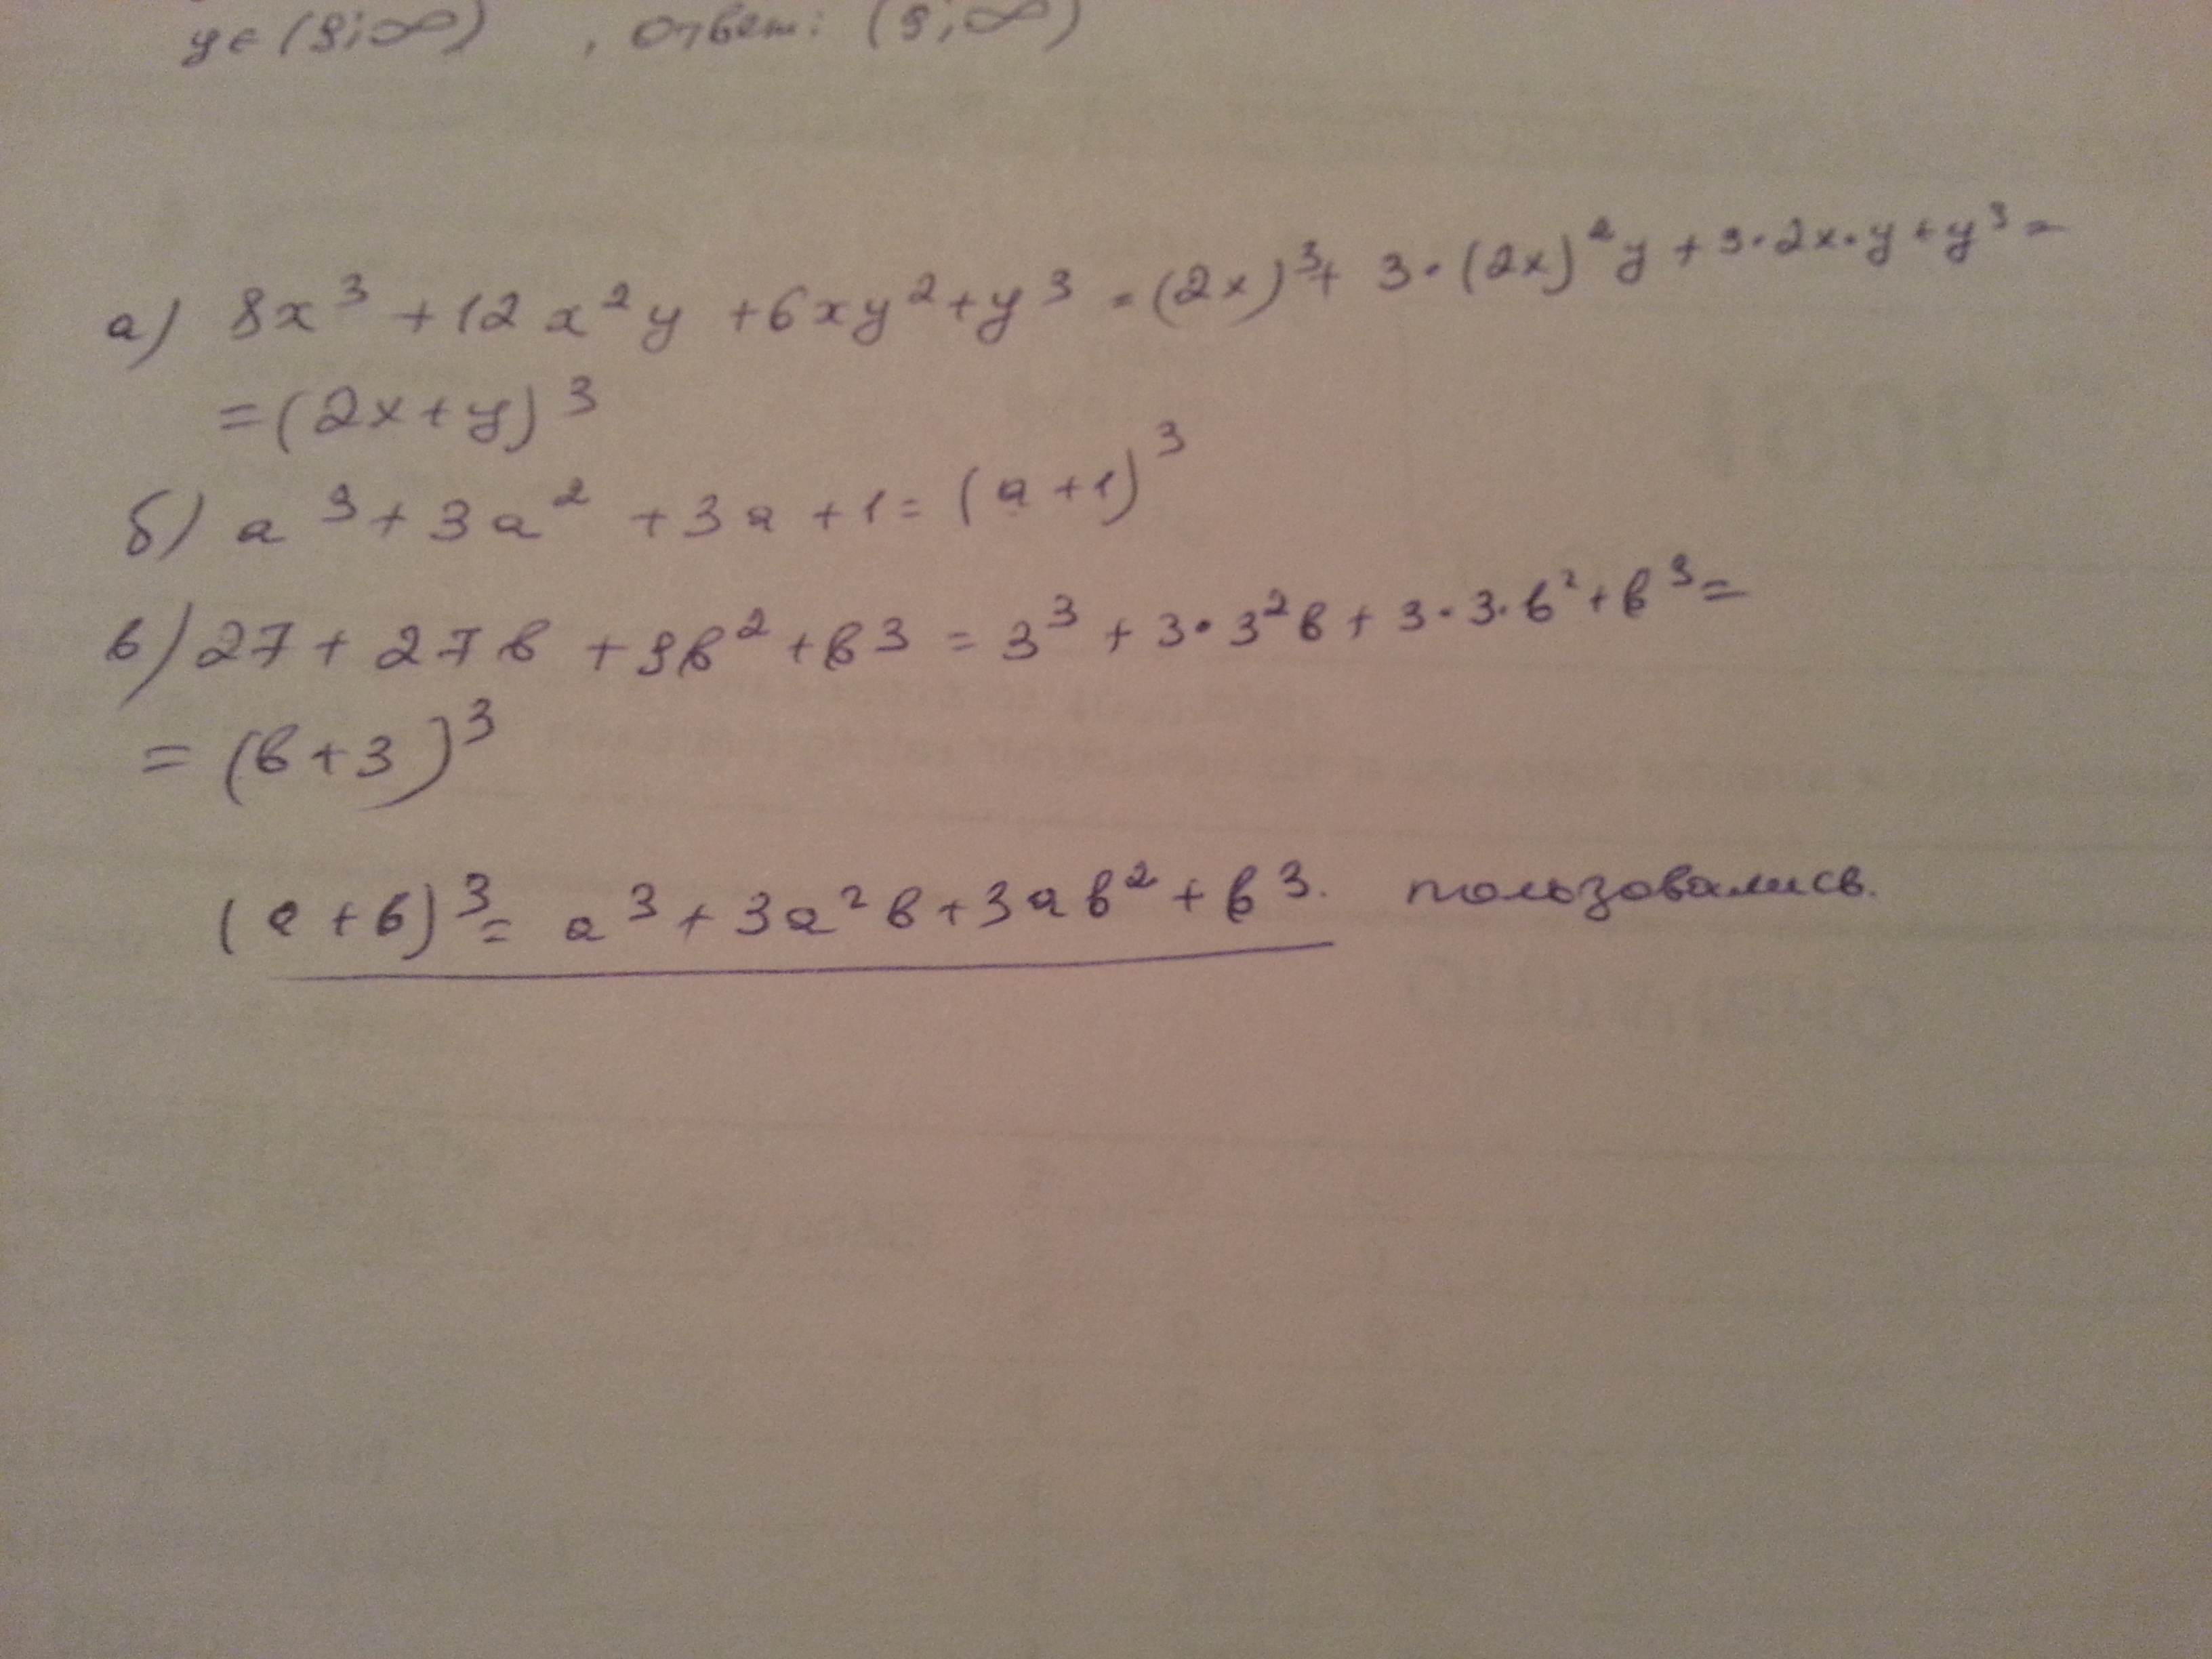 y∈(9;∞) , ответ: (9;∞)
а) 8x³+12x²y+6xy²+y³=(2x)³+3·(2x)²y+3·2x·y+y³=
=(2x+y)³
б) a³+3a²+3a+1=(a+1)³
в) 27+27b+9b²+b3=3³+3·3²b+3·3·b²+b³=
=(b+3)³
(a+b)³=a³+3a²b+3ab²+b³. пользовались.